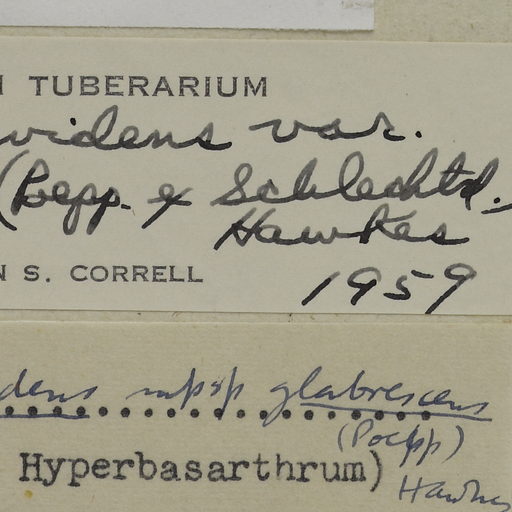 TUBERARIUM
videns var.
(Poepp. ex Schlechtd.
Hawkes
N S. CORRELL
1959
dens subsp glabrescens
(Poepp)
Hyperbasarthrum)
Hawkes